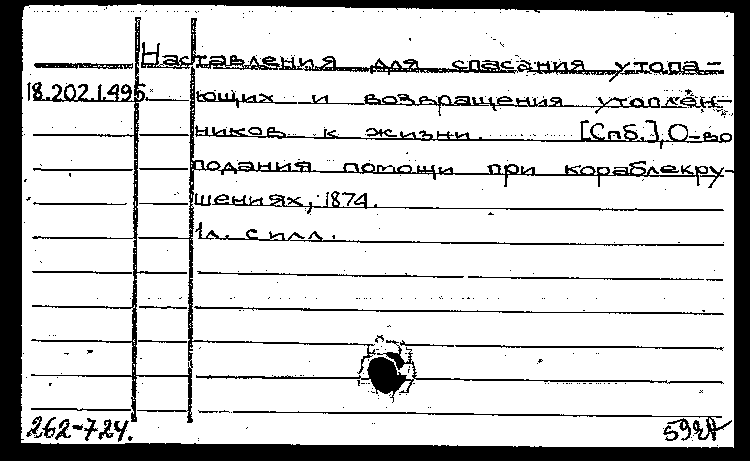 Наставления для спасания утопа-
18.202.1.495. ющих и возвращения утоплен-
ников к жизни. [Спб.], О-во
подания помощи при кораблекру-
шениях, 1874.
1 л. с илл.
262-724.